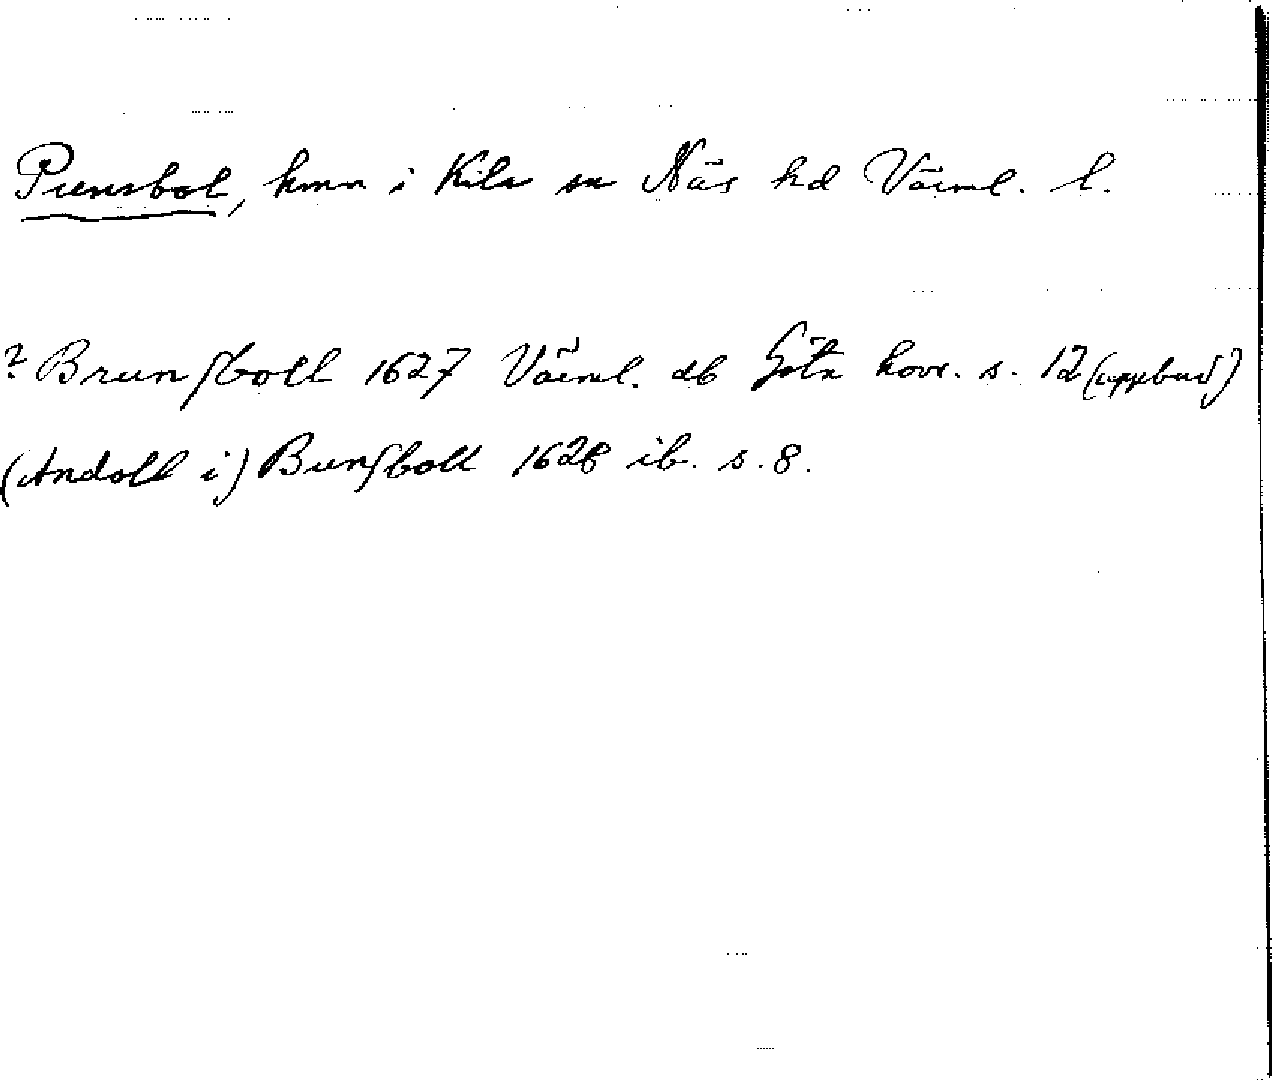 Punsbol, hmn i Kila sn Näs hd Värml. l.
? Brunsboll 1627 Värml. db Göta hovr. s. 12 (uppbud)
(Andoll i) Bunsboll 1628 ib. s. 8.